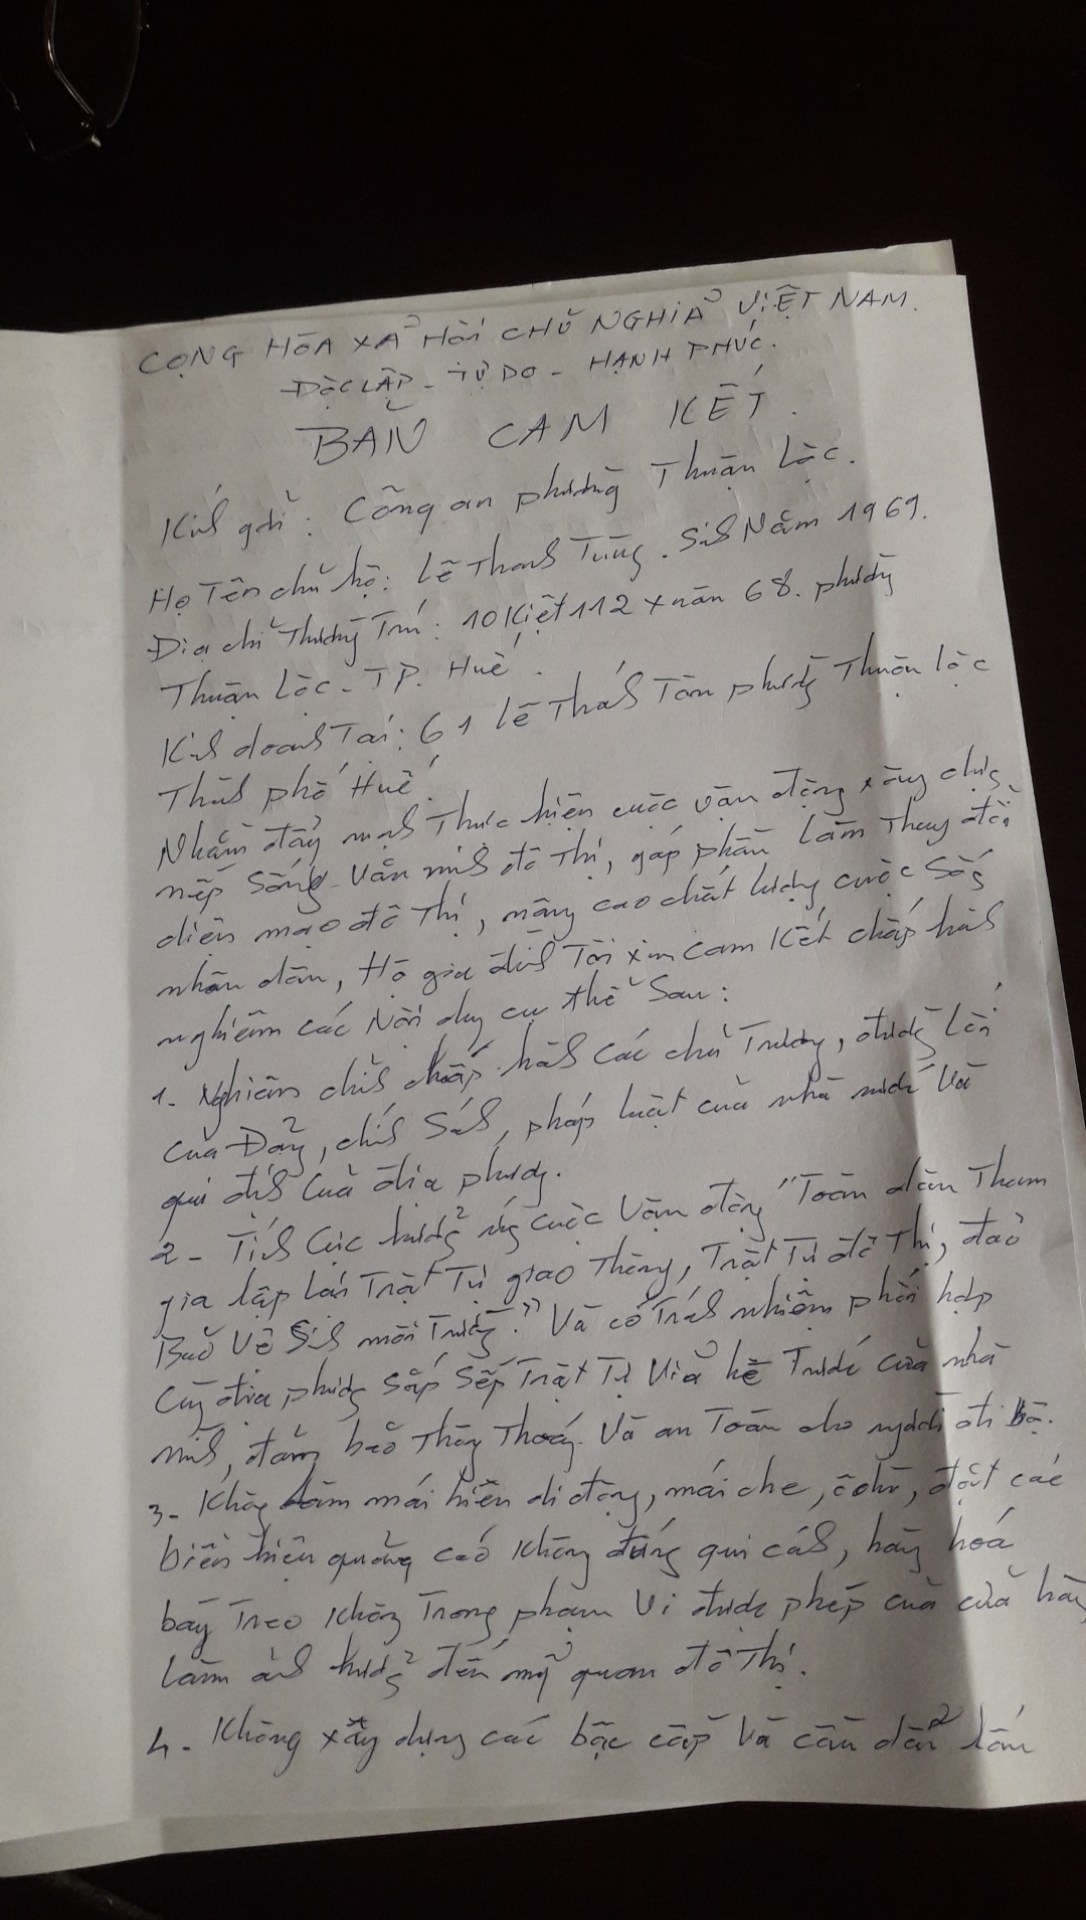 CỌNG HÒA XẢ HỘI CHỦ NGHIẢ VIỆT NAM.
ĐỘC LẬP - TỰ DO - HẠNH PHÚC.
BẢN CAM KẾT.
Kính gởi: Công an phường Thuận Lộc.
Họ Tên chủ hộ: Lê Thanh Tùng. Sinh Năm 1969.
Địa chỉ Thường Trú: 10 Kiệt 112 xuân 68. phường
Thuận Lộc - TP. Huế.
Kinh doanh Tại: 61 Lê Thánh Tôn phường Thuận Lộc
Thành phố Huế.
Nhằm đẩy mạnh Thực hiện cuộc vận động xây dựng
nếp sống Văn minh đô Thị, góp phần làm Thay đổi
diện mạo đô Thị, nâng cao chất lượng cuộc sống
nhân dân, Hộ gia đình Tôi xin cam Kết chấp hành
nghiêm các Nội dung cụ thể sau:
1. Nghiêm chỉnh chấp hành các chủ Trương, đường lối
của Đảng, chính Sách, pháp luật của nhà nước và
qui định của địa phương.
2 - Tích cực hưởng ứng cuộc Vận động "Toàn dân Tham
gia lập lại Trật Tự giao Thông, Trật Tự đô Thị, đảo
Bảo Vệ Sinh môi Trường." Và có Trách nhiệm phối hợp
Cùng địa phương sắp Sếp Trật Tự Vỉa hè Trước cửa nhà
mình, đảm bảo Thông Thoáng Và an Toàn cho người đi bộ.
3. Không làm mái hiên di động, mái che, ô dù, đặt các
biển hiệu quảng cáo không đúng qui cách, hàng hoá
bày Treo không Trong phạm vi được phép của cửa hàng
làm ảnh hưởng đến mỹ quan đô Thị.
4. Không xây dựng các bậc cấp Và cầu dẫn lấn